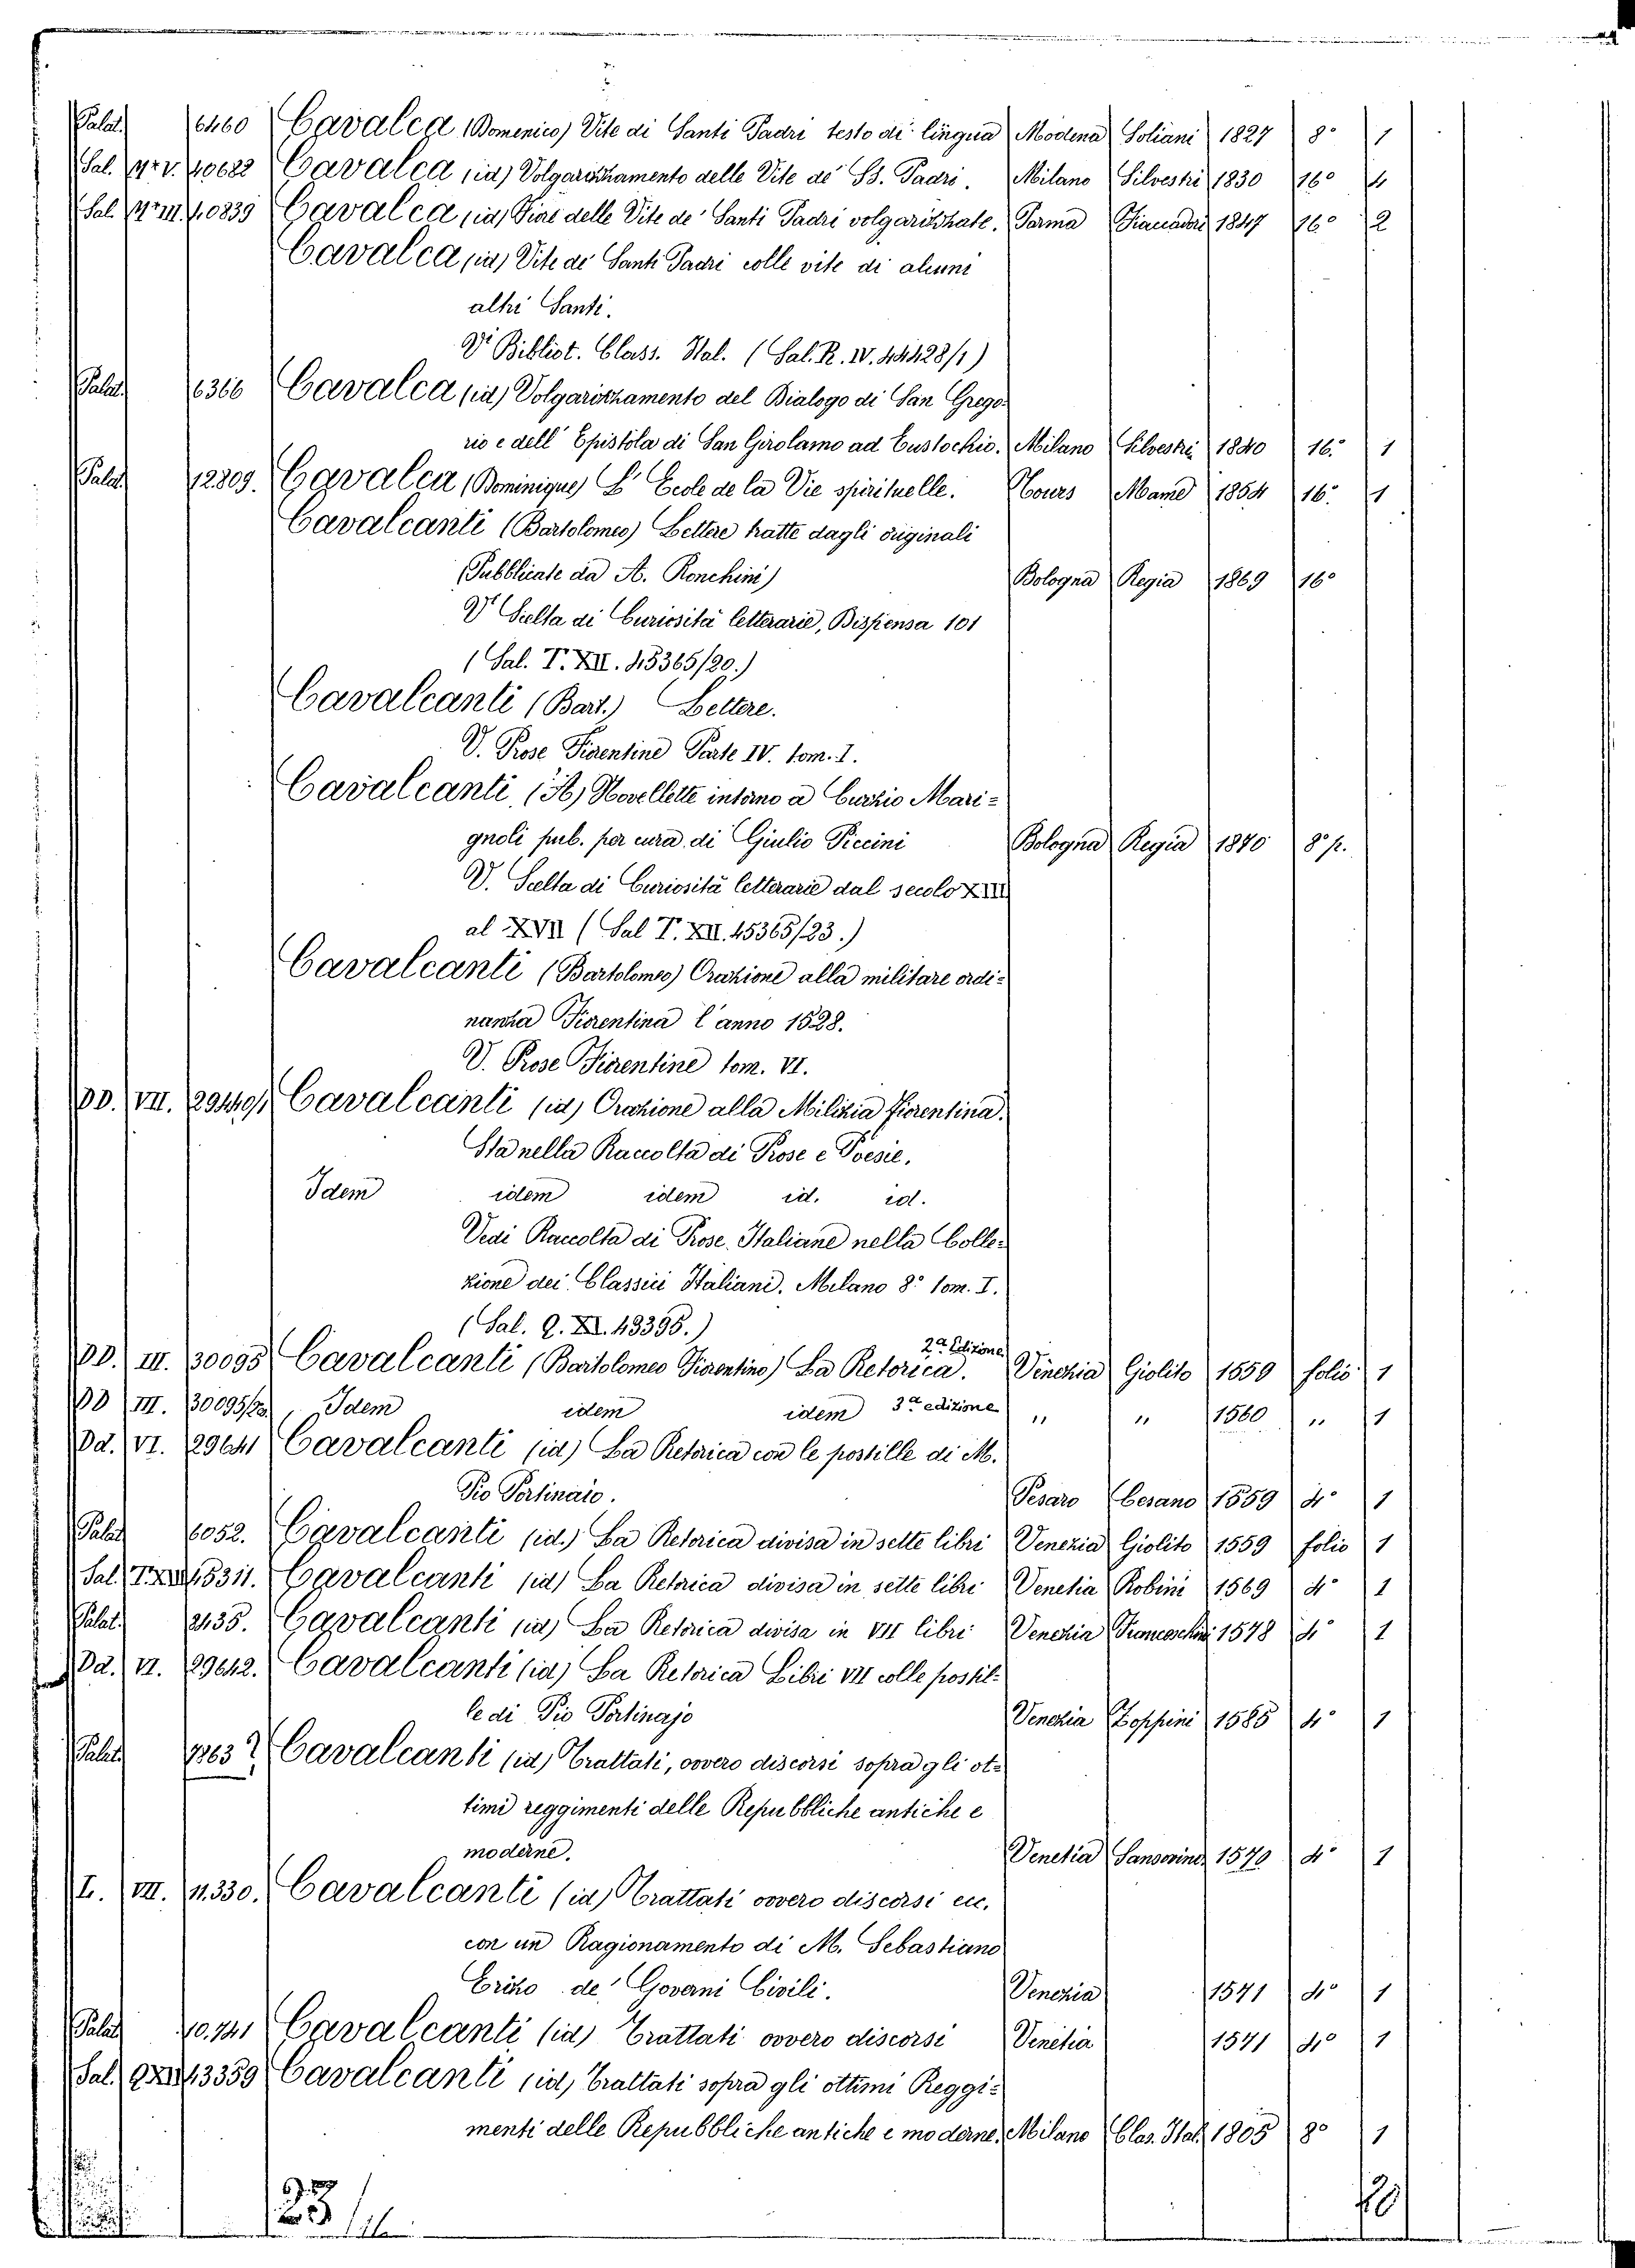 Palat. 6460 Cavalca (Domenico) Vite di Santi Padri testo di lingua Modena Soliani 1827 8° 1
Sal. M.V. 40622 Cavalca (id) Volgarizzamento delle Vite de' SS. Padri. Milano Silvestri 1830 16° 4
Sal. M.III. 40839 Cavalca (id) Fiore delle Vite de' Santi Padri volgarizzate. Parma Fiaccadori 1847 16° 2
Cavalca (id) Vite de' Santi Padri colle vite di alcuni
altri Santi.
Vi Bibliot. Class. Ital. (Sal. R. IV. 44428/1)
Palat. 6366 Cavalca (id) Volgarizzamento del Dialogo di San Grego-
rio e dell' Epistola di San Girolamo ad Eustochio. Milano Silvestri 1840 16° 1
Palat 12809. Cavalca (Dominique) L' Ecole de la Vie spirituelle. Tours Mame 1854 16° 1
Cavalcanti (Bartolomeo) Lettere tratte dagli originali
(Pubblicate da A. Ronchini) Bologna Regia 1869 16°
Vi Scelta di Curiosità letterarie, Dispensa 101
(Sal. T. XII. 45365/20.)
Cavalcanti (Bart.) Lettere.
V. Prose Fiorentine Parte IV. tom. I.
Cavalcanti, (A) Novellette intorno a Curzio Mari-
gnoli pub. per cura di Giulio Piccini Bologna Regia 1870 8° p.
V. Scelta di Curiosità letterarie dal secolo XIII
al XVII (Sal T. XII. 45365/23.)
Cavalcanti (Bartolomeo) Orazione alla militare ordi-
nanza Fiorentina l'anno 1528.
V. Prose Fiorentine tom. VI.
DD. VII. 29440/1 Cavalcanti (id) Orazione alla Milizia fiorentina.
Sta nella Raccolta di Prose e Poesie.
Idem idem idem id. id.
Vedi Raccolta di Prose Italiane nella Colle-
zione dei Classici Italiani. Milano 8° tom. I.
(Sal. Q. XI. 43395.)
DD. III. 30095 Cavalcanti (Bartolomeo Fiorentino) La Retorica. 2a Edizione Venezia Giolito 1559 folio 1
DD III. 30095/2a. Idem idem idem 3a edizione " " 1560 " 1
Dd. VI. 29641 Cavalcanti (id) La Retorica con le postille di M.
Pio Portinaio. Pesaro Cesano 1559 4° 1
Palat 6052. Cavalcanti (id.) La Retorica divisa in sette libri Venezia Giolito 1559 folio 1
Sal. T.XII 45311. Cavalcanti (id) La Retorica divisa in sette libri Venetia Robini 1569 4° 1
Palat. 2435. Cavalcanti (id) La Retorica divisa in VII libri Venezia Franceschini 1578 4° 1
Dd. VI. 29642. Cavalcanti (id) La Retorica Libri VII colle postil-
le di Pio Portinajo Venezia Zoppini 1585 4° 1
Palat. 7863 2 Cavalcanti (id) Trattati, ovvero discorsi sopra gli ot-
timi reggimenti delle Repubbliche antiche e
moderne. Venetia Sansovino 1570 4° 1
L. VII. 11.330. Cavalcanti (id) Trattati ovvero discorsi ec.
con un Ragionamento di M. Sebastiano
Erizzo de' Governi Civili. Venezia 1571 4° 1
Palat 10.741 Cavalcanti (id) Trattati ovvero discorsi Venetia 1571 4° 1
Sal. Q.XI 43359 Cavalcanti (id) Trattati sopra gli ottimi Reggi-
menti delle Repubbliche antiche e moderne. Milano Clas. Ital. 1805 8° 1
23
20